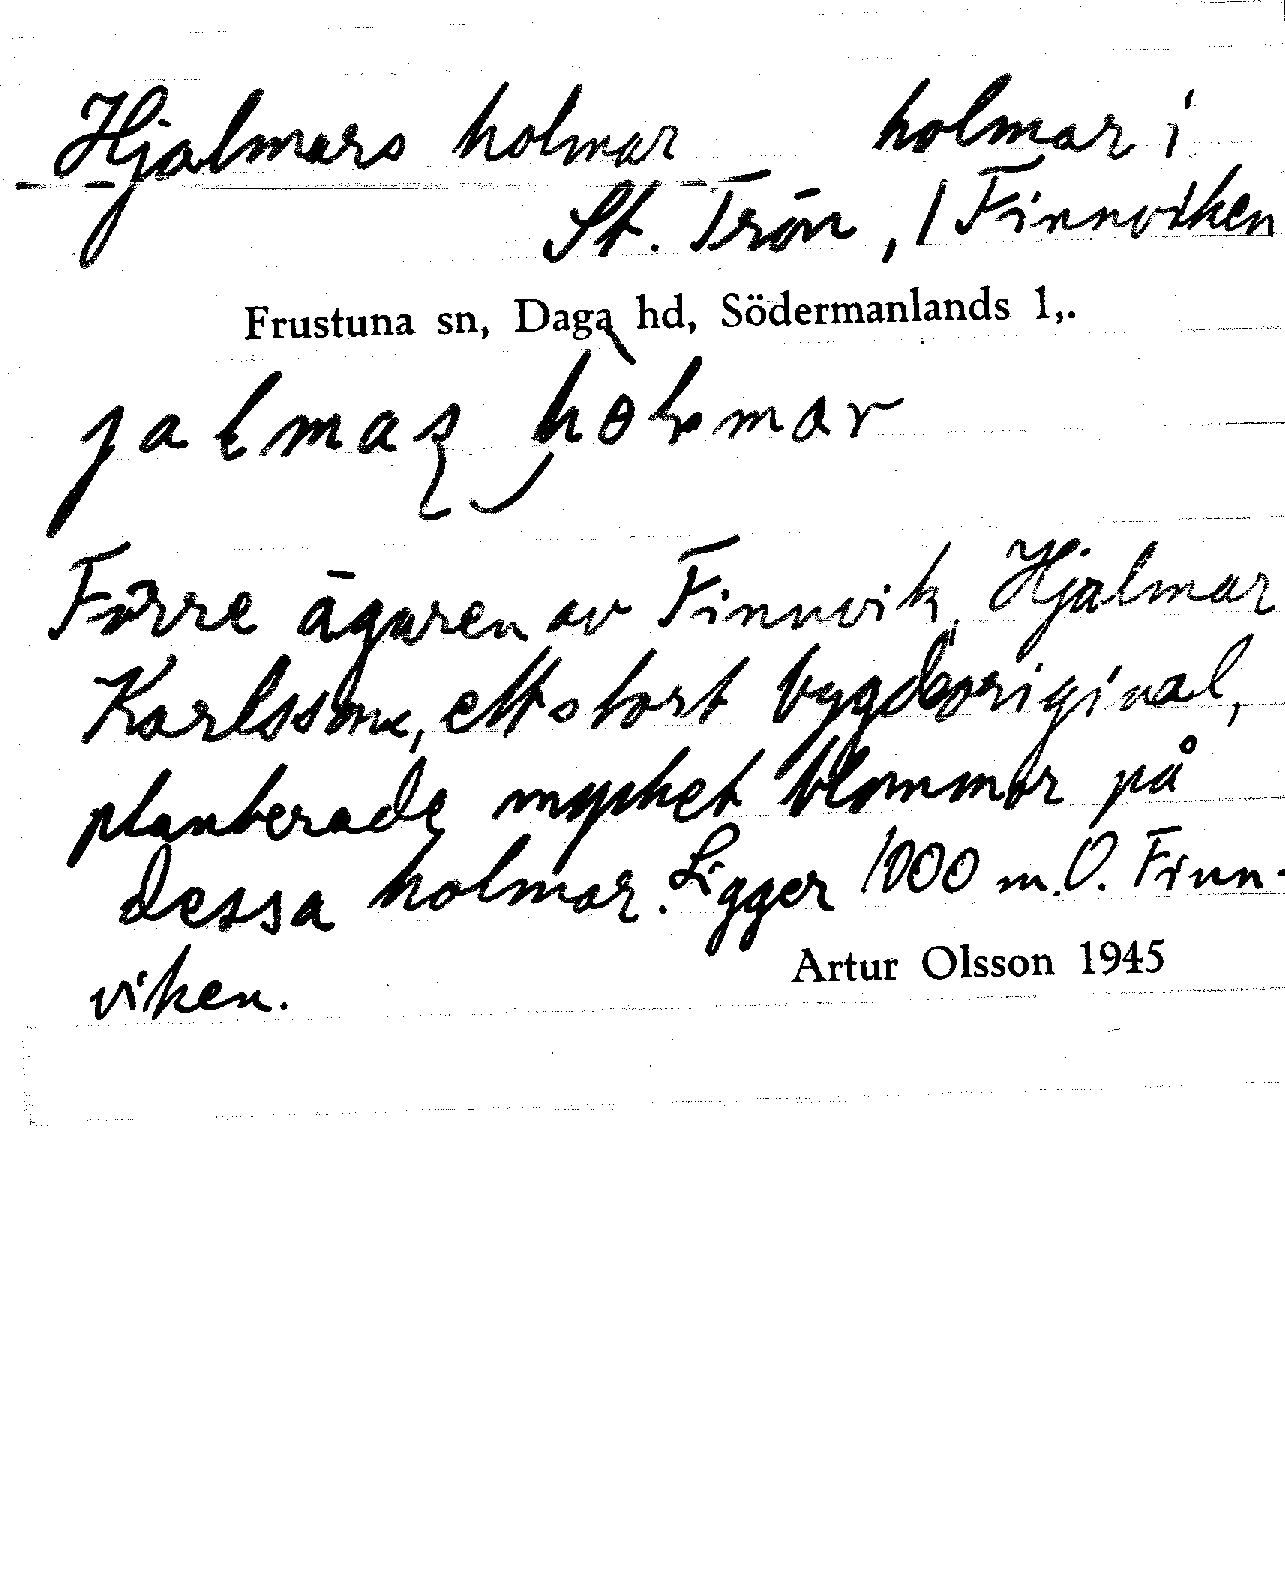 Hjalmars holmar holmar i
St. Trön, / Finnviken
Frustuna sn, Daga hd, Södermanlands l,.
jalmaʂ holmar
Förre ägaren av Finnvik, Hjalmar
Karlsson, ett stort bygdeoriginal,
planterade mycket blommor på
dessa holmar. Ligger 1000 m. O. Finn-
viken.
Artur Olsson 1945